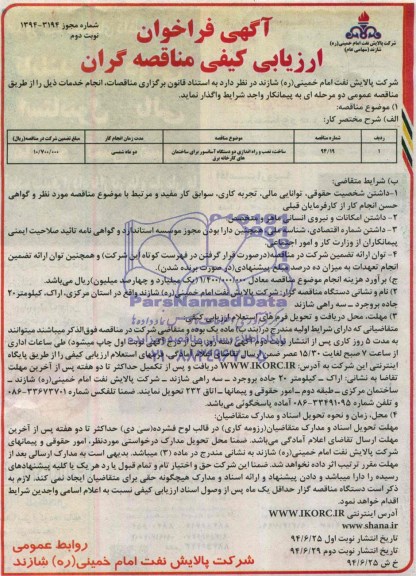 شماره مجوز ۱۳۹۴-۳۱۹۴
نوبت دوم
آگهی فراخوان
ارزیابی کیفی مناقصه گران
شرکت پالایش نفت امام خمینی (ره)
شازند (سهامی عام)
شرکت پالایش نفت امام خمینی(ره) شازند در نظر دارد به استناد قانون برگزاری مناقصات، انجام خدمات ذیل را از طریق
مناقصه عمومی دو مرحله ای به پیمانکار واجد شرایط واگذار نماید.
۱) موضوع مناقصه:
الف) شرح مختصر کار:
ردیف شماره مناقصه موضوع مناقصه مدت زمان انجام کار مبلغ تضمین شرکت در مناقصه(ریال)
۱ ۹۴/۱۹ ساخت، نصب و راه اندازی دو دستگاه آسانسور برای ساختمان دو ماه شمسی
های کارخانه برق
ب) شرایط متقاضی:
۱- داشتن شخصیت حقوقی، توانایی مالی، تجربه کاری، سوابق کار مفید و مرتبط با موضوع مناقصه مورد نظر و گواهی
حسن انجام کار از کارفرمایان قبلی
۲- داشتن امکانات و نیروی انسانی ماهر و متخصص
۳- داشتن شماره اقتصادی، شناسه ملی و همچنین دارا بودن مجوز موسسه استاندارد و گواهی نامه تائید صلاحیت ایمنی
پیمانکاران از وزارت کار و امور اجتماعی
۴- توان ارائه تضمین شرکت در مناقصه(درصورت قرار گرفتن در فهرست کوتاه این شرکت) و همچنین توان ارائه تضمین
انجام تعهدات به میزان ده درصد مبلغ پیشنهادی(در صورت برنده شدن).
ج) برآورد هزینه انجام موضوع مناقصه معادل (یک میلیارد و چهارصد میلیون)ریال می‌باشد.
۲) نام و نشانی دستگاه مناقصه گزار: شرکت پالایش نفت امام خمینی(ره) شازند واقع در استان مرکزی، اراک، کیلومتر۲۰
جاده بروجرد ـ سه راهی شازند
۳) مهلت، محل دریافت و تحویل فرم های استعلام ارزیابی کیفی:
متقاضیانی که دارای شرایط اولیه مندرج در(بند ب) ماده یک بوده و متقاضی شرکت در مناقصه فوق الذکر میباشند میتوانند
به مدت ۵ روز کاری پس از انتشار نوبت دوم آگهی
از ساعت ۷ صبح لغایت ۱۵/۳۰ عصر ضمن ارسال تقاضای اعلام آمادگی، فرمهای استعلام ارزیابی کیفی را از طریق پایگاه
اینترنتی این شرکت به آدرس: WWW.IKORC.IR دریافت و پس از تکمیل حداکثر تا دو هفته پس از آخرین مهلت
تقاضا به نشانی: اراک ـ کیلومتر ۲۰ جاده بروجرد ـ سه راهی شازند ـ شرکت پالایش نفت امام خمینی(ره) شازند ـ
ساختمان مرکزی ـ طبقه دوم ـ امور حقوقی و پیمانها ـ اتاق ۲۳۲ تحویل نمایند. ضمنا تلفکس شماره ۳۳۶۷۳۷۰۱-۰۸۶
و تلفن شماره ۳۳۴۹۱۰۹۵-۰۸۶ آماده پاسخگوئی می‌باشد.
۴) محل، زمان و نحوه تحویل اسناد و مدارک متقاضیان:
مهلت تحویل اسناد و مدارک متقاضیان(رزومه کاری) در قالب لوح فشرده(سی دی) حداکثر تا دو هفته پس از آخرین
مهلت ارسال تقاضای اعلام آمادگی می‌باشد. ضمنا محل تحویل مدارک درخواستی موردنظر، امور حقوقی و پیمانهای
شرکت پالایش نفت امام خمینی(ره) شازند به نشانی مندرج در ماده (۳) میباشد. بدیهی است به مدارک ارسالی بعد از
مهلت مقرر ترتیب اثر داده نخواهد شد. ضمنا این شرکت حق و اختیار تام و تمام قبول یا رد هر یک یا کلیه پیشنهادهای
رسیده را دارا میباشد و دادن پیشنهاد و ارائه اسناد و مدارک هیچگونه حقی برای متقاضیان ایجاد نمی کند. لازم به
ذکر است دستگاه مناقصه گزار حداقل یک ماه پس از وصول اسناد ارزیابی کیفی نسبت به اعلام اسامی واجدین شرایط
اقدام خواهد نمود.
آدرس اینترنتی WWW.IKORC.IR
www.shana.ir
تاریخ انتشار نوبت اول ۹۴/۶/۲۵
تاریخ انتشار نوبت دوم ۹۴/۶/۲۹
خ ش ۹۴/۶/۲۵
روابط عمومی
شرکت پالایش نفت امام خمینی (ره) شازند
ParsNamadData